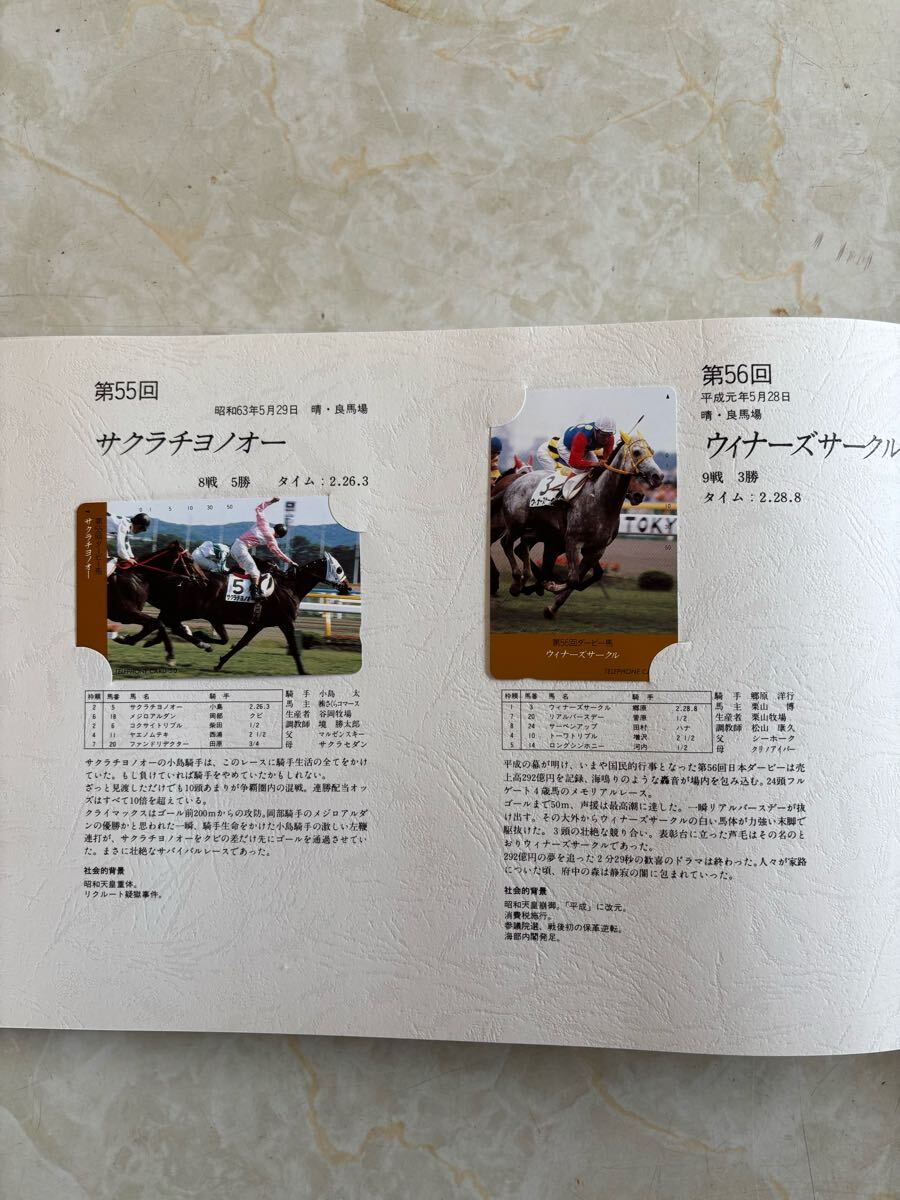 第55回
昭和63年5月29日 晴・良馬場
サクラチヨノオー
8戦 5勝 タイム：2.26.3
0 1 5 10 30 50
第55回ダービー馬
サクラチヨノオー
5
サクラチヨノオー
TELEPHONE CARD 50
枠順 馬番 馬名 騎手
2 5 サクラチヨノオー 小島 2.26.3
6 18 メジロアルダン 岡部 クビ
2 6 コクサイトリプル 柴田 1/2
4 11 ヤエノムテキ 西浦 2 1/2
7 20 ファンドリデクター 田原 3/4
騎手 小島 太
馬主 ㈱さくらコマース
生産者 谷岡牧場
調教師 境 勝太郎
父 マルゼンスキー
母 サクラセダン
サクラチヨノオーの小島騎手は、このレースに騎手生活の全てをかけ
ていた。もし負けていれば騎手をやめていたかもしれない。
ざっと見渡しただけでも10頭あまりが争覇圏内の混戦。連勝配当オッ
ズはすべて10倍を超えている。
クライマックスはゴール前200mからの攻防。岡部騎手のメジロアルダ
ンの優勝かと思われた一瞬、騎手生命をかけた小島騎手の激しい左鞭
連打が、サクラチヨノオーをクビの差だけ先にゴールを通過させてい
た。まさに壮絶なサバイバルレースであった。
社会的背景
昭和天皇重体。
リクルート疑獄事件。
第56回
平成元年5月28日
晴・良馬場
ウィナーズサークル
9戦 3勝
タイム：2.28.8
3
TOKY
10
50
第56回ダービー馬
ウィナーズサークル
TELEPHONE CA
枠順 馬番 馬名 騎手
1 3 ウィナーズサークル 郷原 2.28.8
7 20 リアルバースデー 菅原 1/2
8 24 サーペンアップ 田村 ハナ
4 10 トーワトリプル 増沢 2 1/2
5 14 ロングシンホニー 河内 1/2
騎手 郷原 洋行
馬主 栗山 博
生産者 栗山牧場
調教師 松山 康久
父 シーホーク
母 クリノアイバー
平成の幕が明け、いまや国民的行事となった第56回日本ダービーは売
上高292億円を記録、海鳴りのような轟音が場内を包み込む。24頭フル
ゲート4歳馬のメモリアルレース。
ゴールまで50m、声援は最高潮に達した。一瞬リアルバースデーが抜
け出す。その大外からウィナーズサークルの白い馬体が力強い末脚で
駆抜けた。3頭の壮絶な競り合い。表彰台に立った芦毛はその名のと
おりウィナーズサークルであった。
292億円の夢を追った2分29秒の歓喜のドラマは終わった。人々が家路
についた頃、府中の森は静寂の闇に包まれていった。
社会的背景
昭和天皇崩御。「平成」に改元。
消費税施行。
参議院選、戦後初の保革逆転。
海部内閣発足。